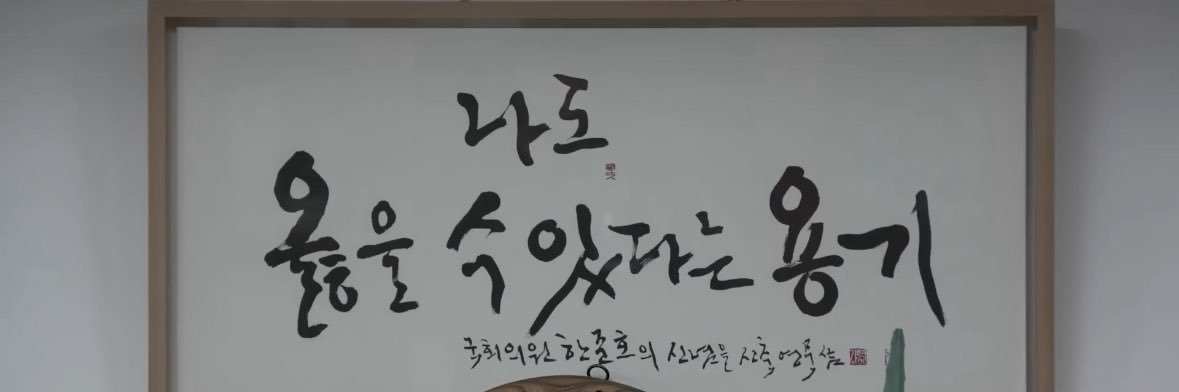 나도
옳을 수 있다는 용기
국회의원 한준호의 신념을 신축